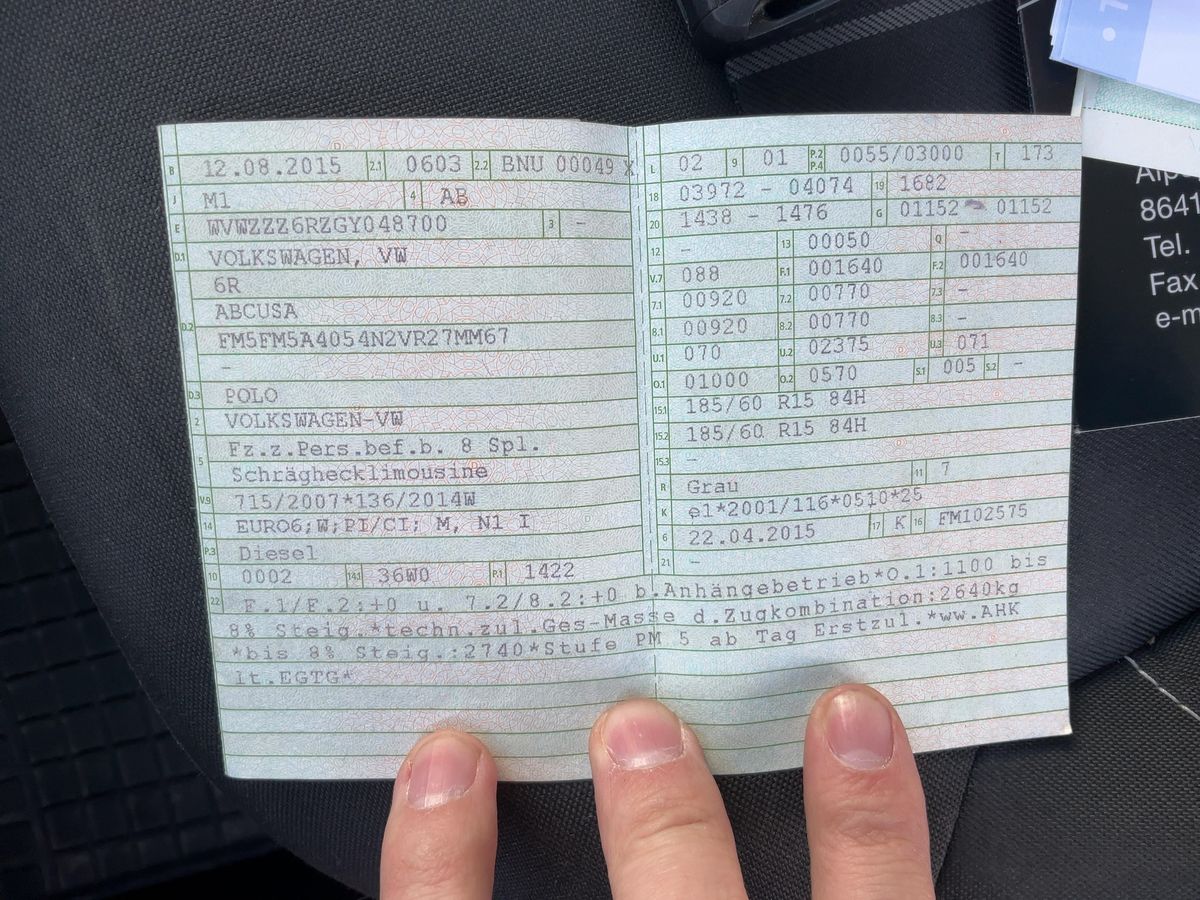 B 12.08.2015 2.1 0603 2.2 BNU 00049 X
J M1 4 AB
E WVWZZZ6RZGY048700 3 -
D.1 VOLKSWAGEN, VW
6R
D.2 ABCUSA
FM5FM5A4054N2VR27MM67
-
D.3 POLO
2 VOLKSWAGEN-VW
5 Fz.z.Pers.bef.b. 8 Spl.
Schräghecklimousine
V.9 715/2007*136/2014W
14 EURO6;W;PI/CI; M, N1 I
P.3 Diesel
10 0002 14.1 36W0 P.1 1422
L 02 9 01 P.2 P.4 0055/03000 T 173
18 03972 - 04074 19 1682
20 1438 - 1476 G 01152 - 01152
12 - 13 00050 Q -
V.7 088 F.1 001640 F.2 001640
7.1 00920 7.2 00770 7.3 -
8.1 00920 8.2 00770 8.3 -
U.1 070 U.2 02375 U.3 071
O.1 01000 O.2 0570 S.1 005 S.2 -
15.1 185/60 R15 84H
15.2 185/60 R15 84H
15.3 -
R Grau 11 7
K e1*2001/116*0510*25
6 22.04.2015 17 K 16 FM102575
21 -
22 F.1/F.2:+0 u. 7.2/8.2:+0 b.Anhängebetrieb*O.1:1100 bis
8% Steig.*techn.zul.Ges-Masse d.Zugkombination:2640kg
*bis 8% Steig.:2740*Stufe PM 5 ab Tag Erstzul.*ww.AHK
lt.EGTG*
8641
Tel.
Fax